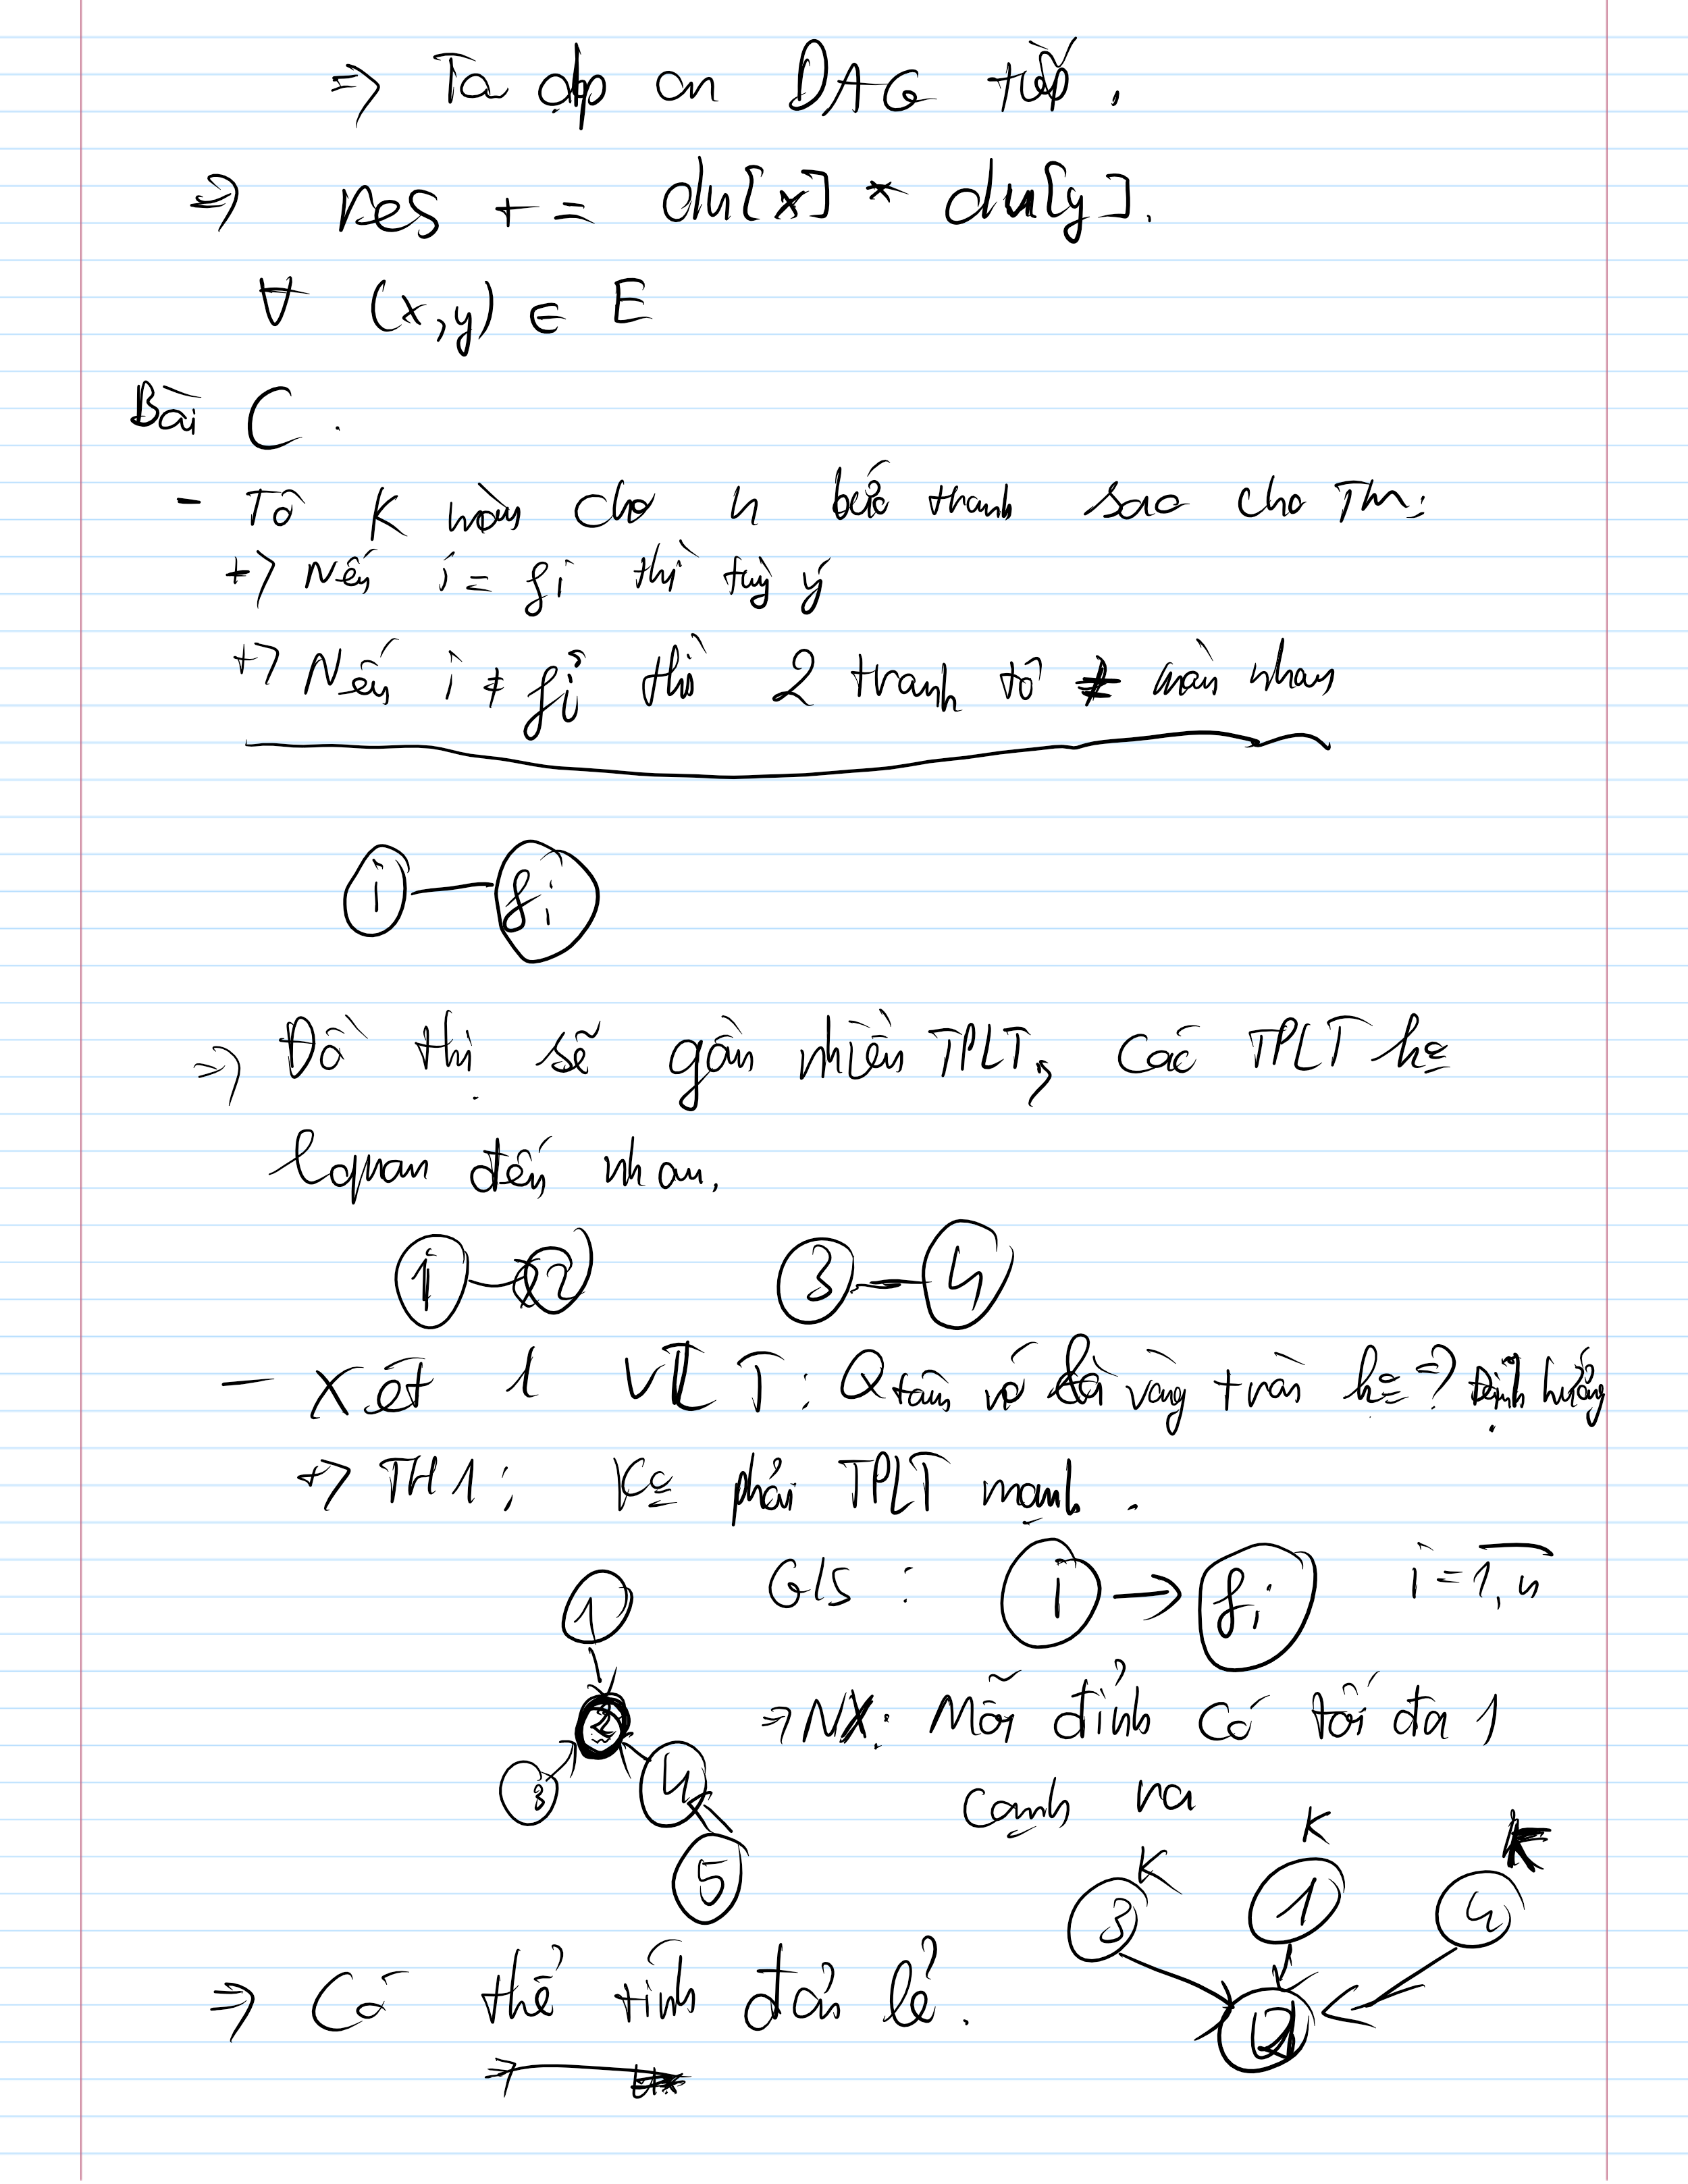 => Ta dp on DAG tiếp.
=> res += du[x] * du[y].
∀ (x,y) ∈ E
Bài C.
- Tô K màu cho n bức tranh sao cho TM:
+> Nếu i = fi thì tuỳ ý
+> Nếu i ≠ fi thì 2 tranh tô ≠ màu nhau
i fi
=> Đồ thị sẽ gồm nhiều TPLT, các TPLT ko
lquan đến nhau.
1 2 3 4
- Xét 1 TPLT: Qtâm về vòng tròn ko => Định hướng
+> TH1: Ko phải TPLT mạnh.
G/S: i -> fi i = 1,n
1
2
=> NX: Mỗi đỉnh có tối đa 1
cạnh ra
3 4
5
K K K
3 1 4
2
=> Có thể tính đơn lẻ.